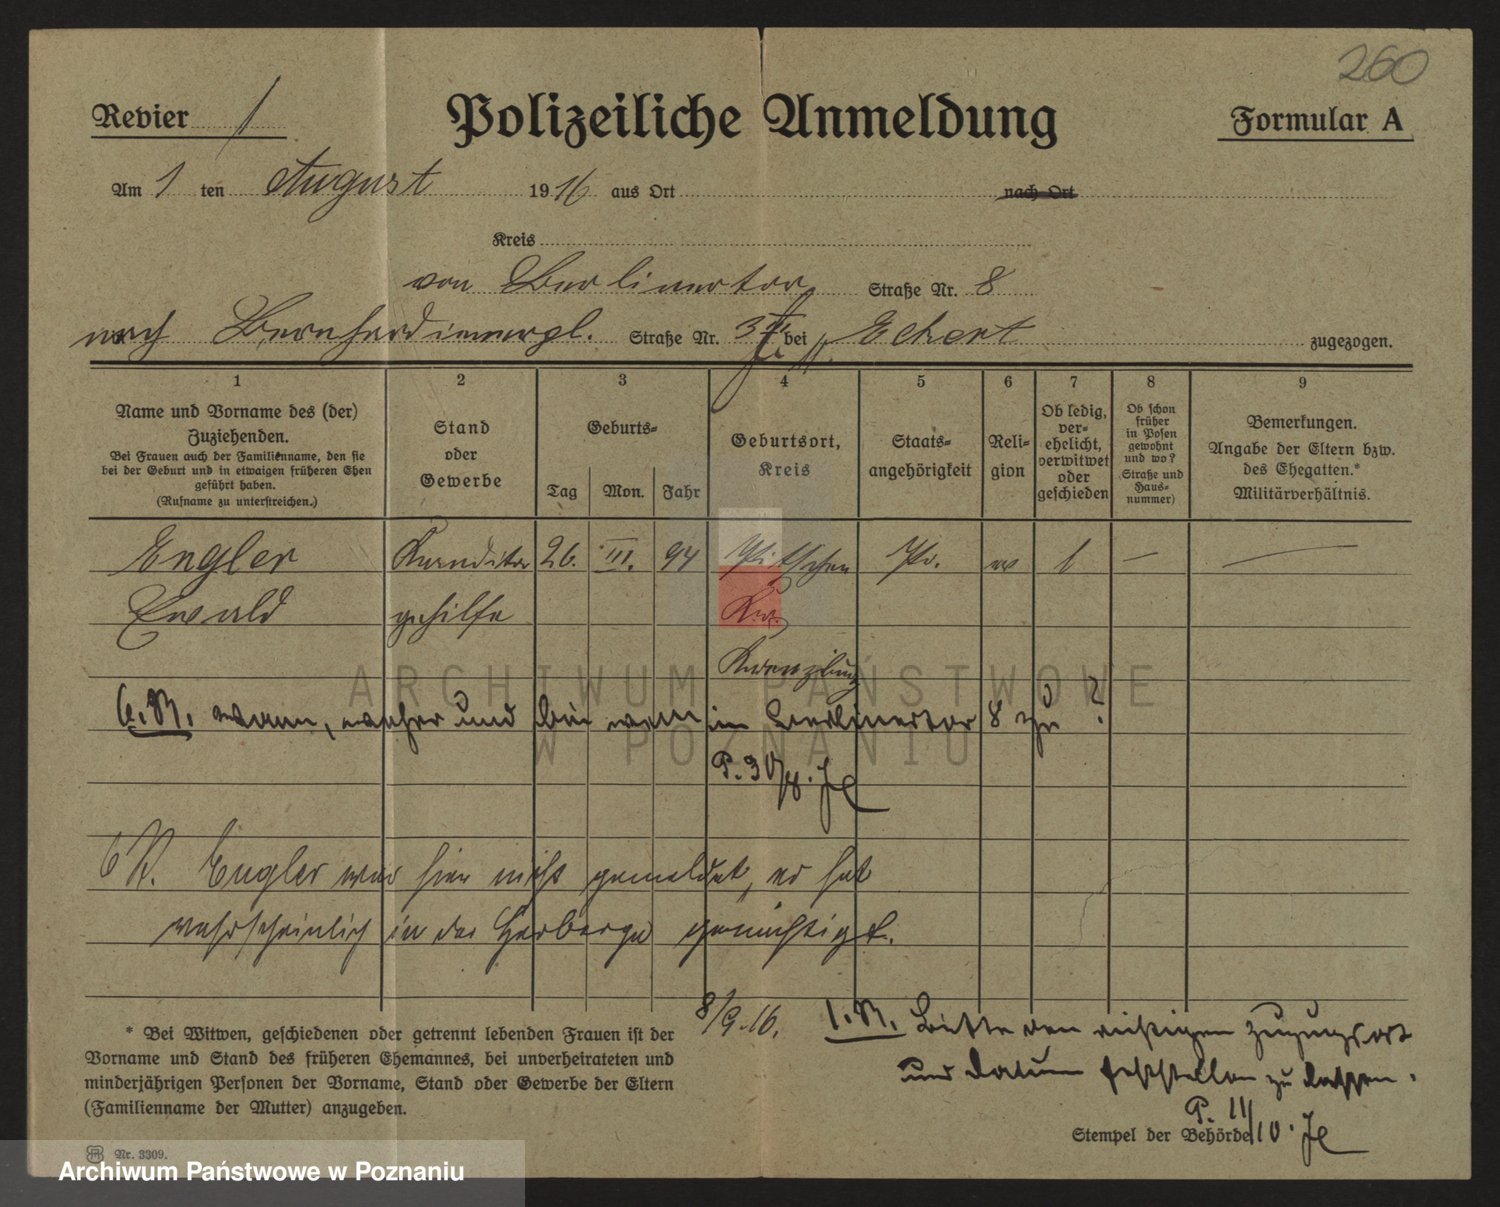 260
Revier 1 Polizeiliche Anmeldung Formular A
Am 1 ten August 1916 aus Ort nach Ort
Kreis
von Berlinertor Straße Nr. 8
nach Bernhardinerpl. Straße Nr. 3 bei Eckert zugezogen.
1 2 3 4 5 6 7 8 9
Name und Vorname des (der)
Zuziehenden.
Bei Frauen auch der Familienname, den sie
bei der Geburt und in etwaigen früheren Ehen
geführt haben.
(Rufname zu unterstreichen.)
Stand
oder
Gewerbe
Geburts-
Tag Mon. Jahr
Geburtsort,
Kreis
Staats-
angehörigkeit
Reli-
gion
Ob ledig,
ver-
ehelicht,
verwitwet
oder
geschieden
Ob schon
früher
in Posen
gewohnt
und wo?
(Straße und
Haus-
nummer)
Bemerkungen.
Angabe der Eltern bzw.
des Ehegatten.*
Militärverhältnis.
Engler Konditor 26. III. 94 Pitschen Pr. l —
Ewald gehilfe Kr.
Kreuzburg
6. R. wann, woher und bei wem in Berlinertor 8 zu?
P. 30/8. Je
6 R. Engler war hier nicht gemeldet, er hat
wahrscheinlich in der Herberge genächtigt.
8/9. 16.
1. R. Bitte den richtigen Zuzugsort
und Datum feststellen zu lassen.
P. 11/10. Je
* Bei Witwen, geschiedenen oder getrennt lebenden Frauen ist der
Vorname und Stand des früheren Ehemannes, bei unverheirateten und
minderjährigen Personen der Vorname, Stand oder Gewerbe der Eltern
(Familienname der Mutter) anzugeben.
Stempel der Behörde
Nr. 3309.
ARCHIWUM PAŃSTWOWE
W POZNANIU
Archiwum Państwowe w Poznaniu